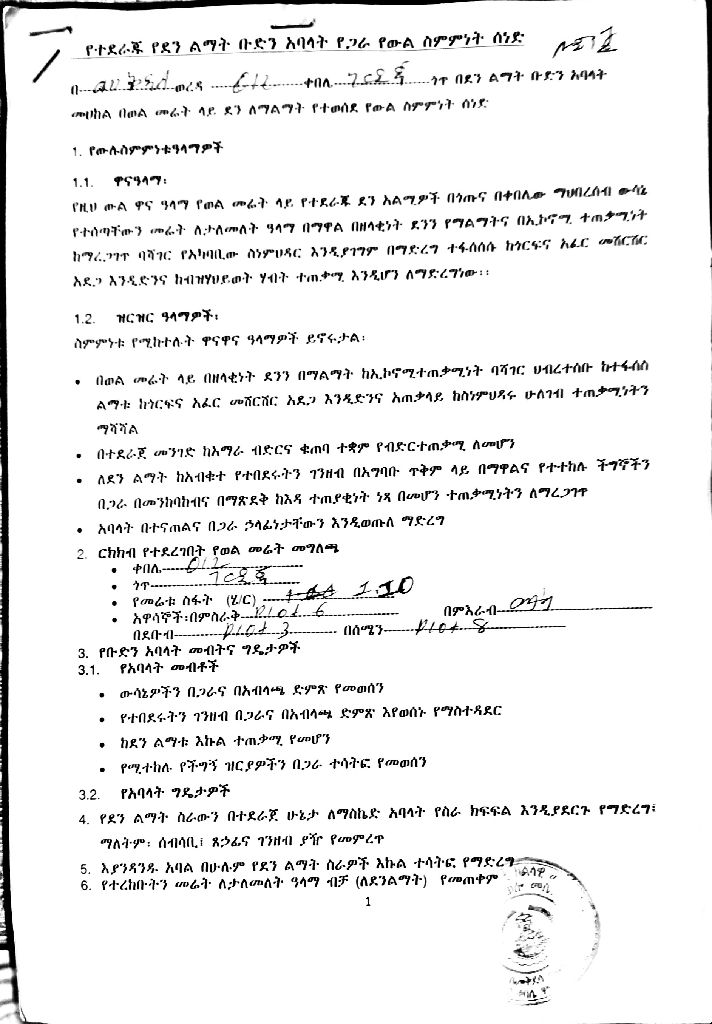 የተደራጁ የደን ልማት ቡድን አባላት የጋራ የውል ስምምነት ሰነድ
በ ወረዳ 012 ቀበሌ ጎጥ በደን ልማት ቡድን አባላት
መሀከል በወል መሬት ላይ ደን ለማልማት የተወሰደ የውል ስምምነት ሰነድ
1. የውሉስምምነቱዓላማዎች
1.1. ዋናዓላማ፡
የዚህ ውል ዋና ዓላማ የወል መሬት ላይ የተደራጁ ደን አልሚዎች በጎጡና በቀበሌው ማህበረሰብ ውሳኔ
የተሰጣቸውን መሬት ለታለመለት ዓላማ በማዋል በዘላቂነት ደንን የማልማትና በኢኮኖሚ ተጠቃሚነት
ከማረጋገጥ ባሻገር የአካባቢው ስነምህዳር እንዲያገግም በማድረግ ተፋሰሱ ከጎርፍና አፈር መሸርሸር
አደጋ እንዲድንና ከብዝሃህይወት ሃብት ተጠቃሚ እንዲሆን ለማድረግነው፡፡
1.2. ዝርዝር ዓላማዎች፡
ስምምነቱ የሚከተሉት ዋናዋና ዓላማዎች ይኖሩታል፡
• በወል መሬት ላይ በዘላቂነት ደንን በማልማት ከኢኮኖሚተጠቃሚነት ባሻገር ህብረተሰቡ ከተፋሰስ
ልማቱ ከጎርፍና አፈር መሸርሸር አደጋ እንዲድንና አጠቃላይ ከስነምህዳሩ ሁለገብ ተጠቃሚነትን
ማሻሻል
• በተደራጀ መንገድ ከአማራ ብድርና ቁጠባ ተቋም የብድርተጠቃሚ ለመሆን
• ለደን ልማት ከአብቁተ የተበደሩትን ገንዘብ በአግባቡ ጥቅም ላይ በማዋልና የተተከሉ ችግኞችን
በጋራ በመንከባከብና በማጽደቅ ከእዳ ተጠያቂነት ነጻ በመሆን ተጠቃሚነትን ለማረጋገጥ
• አባላት በተናጠልና በጋራ ኃላፊነታቸውን እንዲወጡለ ማድረግ
2. ርክክብ የተደረገበት የወል መሬት መግለጫ
• ቀበሌ 012
• ጎጥ
• የመሬቱ ስፋት (ሄ/ር) 1.10
• አዋሳኞች፡በምስራቅ Plot 6 በምእራብ
በደቡብ Plot 3 በሰሜን Plot 8
3. የቡድን አባላት መብትና ግዴታዎች
3.1. የአባላት መብቶች
• ውሳኔዎችን በጋራና በአብላጫ ድምጽ የመወሰን
• የተበደሩትን ገንዘብ በጋራና በአብላጫ ድምጽ እየወሰኑ የማስተዳደር
• ከደን ልማቱ እኩል ተጠቃሚ የመሆን
• የሚተከሉ የችግኝ ዝርያዎችን በጋራ ተሳትፎ የመወሰን
3.2. የአባላት ግዴታዎች
4. የደን ልማት ስራውን በተደራጀ ሁኔታ ለማስኬድ አባላት የስራ ክፍፍል እንዲያደርጉ የማድረግ፤
ማለትም፡ ሰብሳቢ፤ ጸኃፊና ገንዘብ ያዥ የመምረጥ
5. እያንዳንዱ አባል በሁሉም የደን ልማት ስራዎች እኩል ተሳትፎ የማድረግ
6. የተረከቡትን መሬት ለታለመለት ዓላማ ብቻ (ለደንልማት) የመጠቀም
1